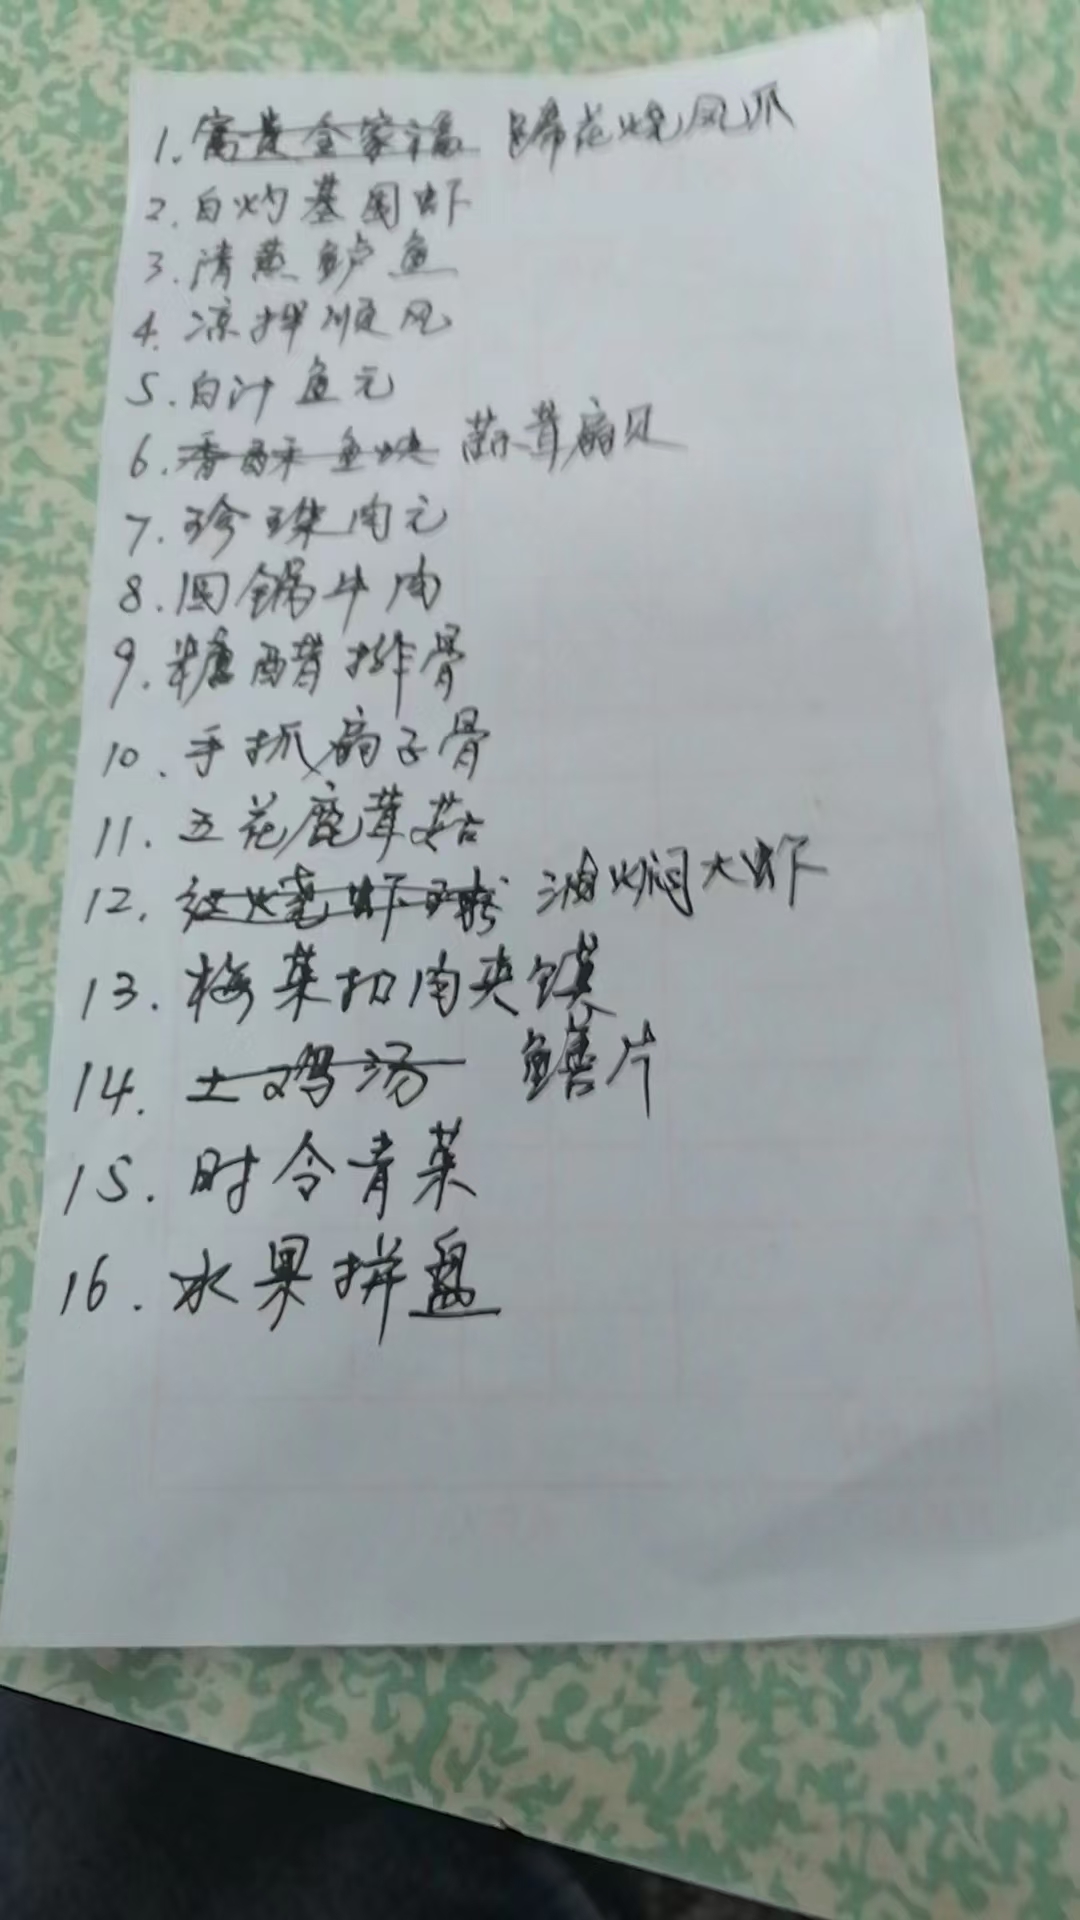 1. 富贵全家福 蹄花烧凤爪
2. 白灼基围虾
3. 清蒸鲈鱼
4. 凉拌顺风
5. 白汁鱼元
6. 香酥鱼块 蒜茸扇贝
7. 珍珠肉元
8. 回锅牛肉
9. 糖醋排骨
10. 手抓扇子骨
11. 五花鹿茸菇
12. 红烧虾球 油焖大虾
13. 梅菜扣肉夹馍
14. 土鸡汤 鳝片
15. 时令青菜
16. 水果拼盘